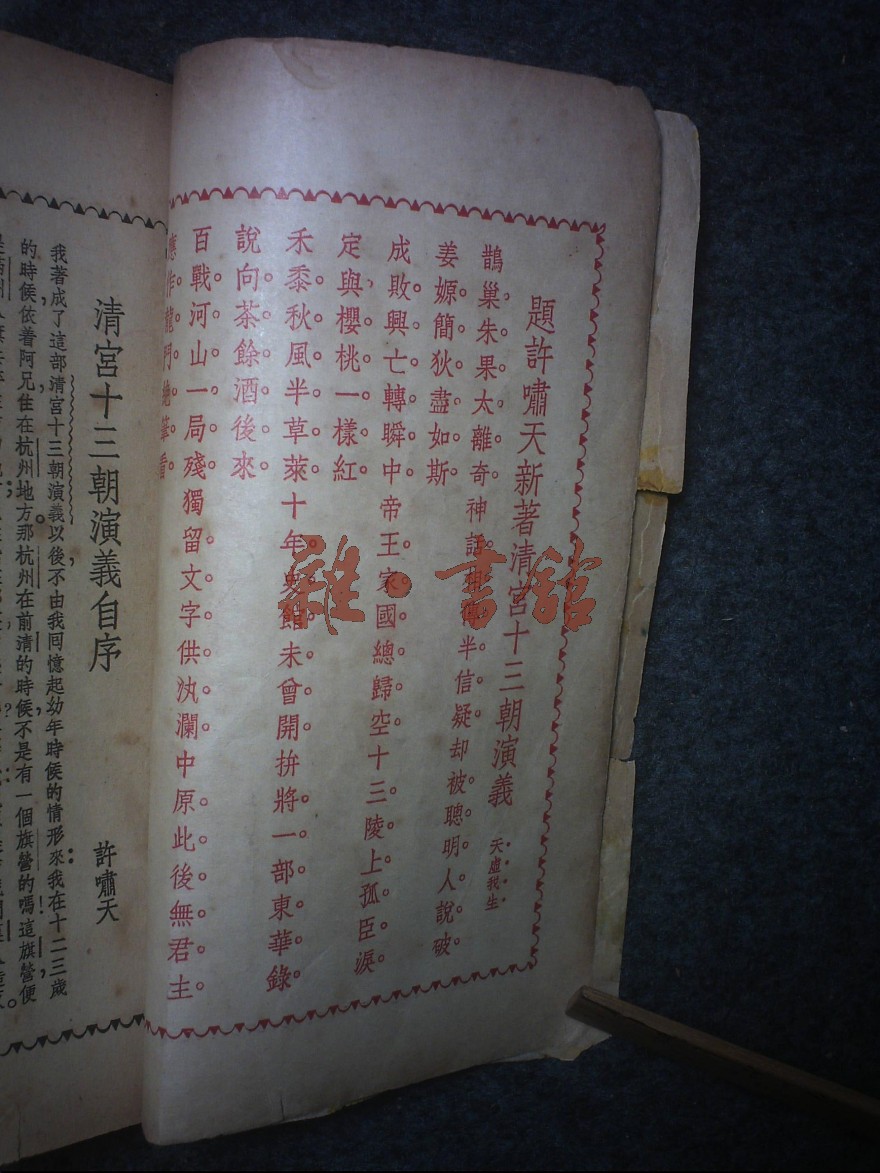 題許嘯天新著清宮十三朝演義 天虛我生
鵲巢朱果太離奇。神話相傳半信疑。却被聰明人說破。
姜嫄簡狄盡如斯。
成敗興亡轉瞬中。帝王家國總歸空。十三陵上孤臣淚。
定與櫻桃一樣紅。
禾黍秋風半草萊。十年史館未曾開。拚將一部東華錄。
說向茶餘酒後來。
百戰河山一局殘。獨留文字供汍瀾。中原此後無君主。
應作龍門絕筆看。
雜·書舘
清宮十三朝演義自序
許嘯天
我著成了這部清宮十三朝演義以後，不由我囘憶起幼年時候的情形來：我在十二三歲
的時候，依着阿兄住在杭州地方。那杭州在前清的時候，不是有一個旗營的嗎！這旗營，便